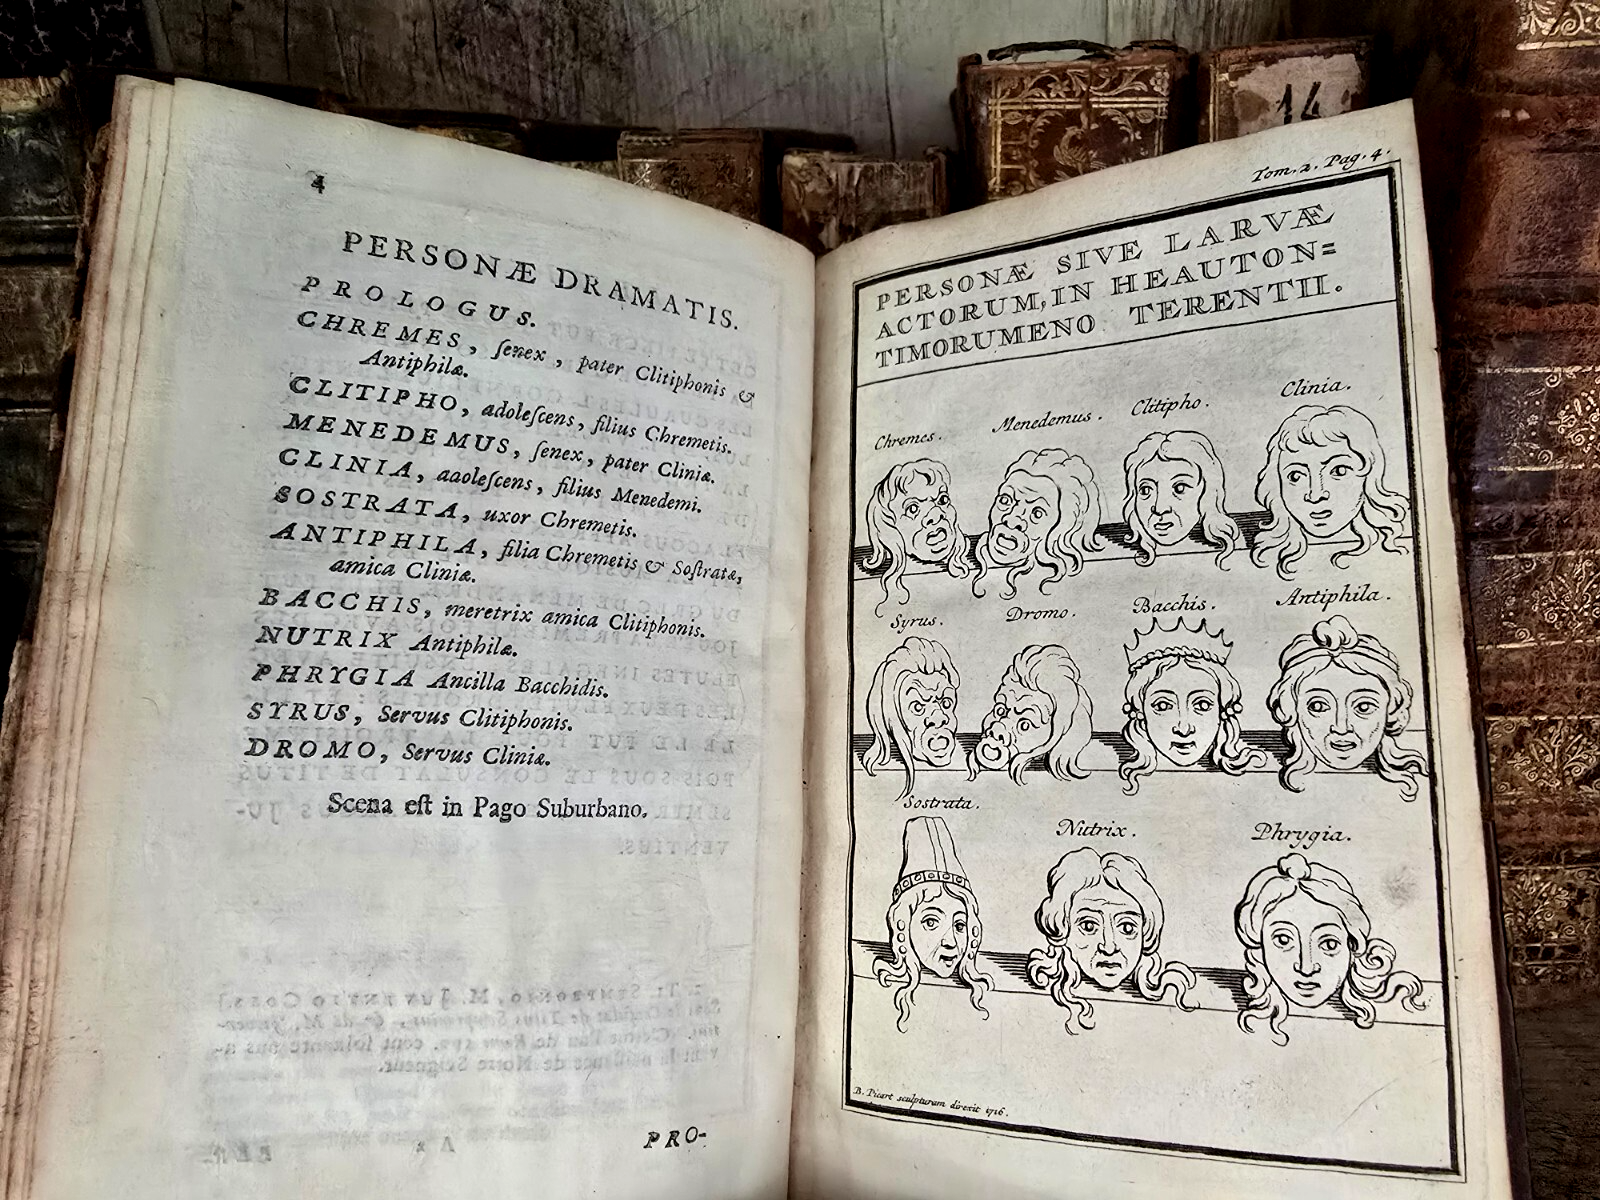 14
4
PERSONÆ DRAMATIS.
PROLOGUS.
CHREMES, ſenex, pater Clitiphonis &
Antiphilæ.
CLITIPHO, adoleſcens, filius Chremetis.
MENEDEMUS, ſenex, pater Cliniæ.
CLINIA, adoleſcens, filius Menedemi.
SOSTRATA, uxor Chremetis.
ANTIPHILA, filia Chremetis & Soſtratæ,
amica Cliniæ.
BACCHIS, meretrix amica Clitiphonis.
NUTRIX Antiphilæ.
PHRYGIA Ancilla Bacchidis.
SYRUS, Servus Clitiphonis.
DROMO, Servus Cliniæ.
Scena eſt in Pago Suburbano.
PRO-
Tom. 2. Pag. 4.
PERSONÆ SIVE LARVÆ
ACTORUM, IN HEAUTON=
TIMORUMENO TERENTII.
Chremes. Menedemus. Clitipho. Clinia.
Syrus. Dromo. Bacchis. Antiphila.
Sostrata. Nutrix. Phrygia.
B. Picart sculpturam direxit 1716.